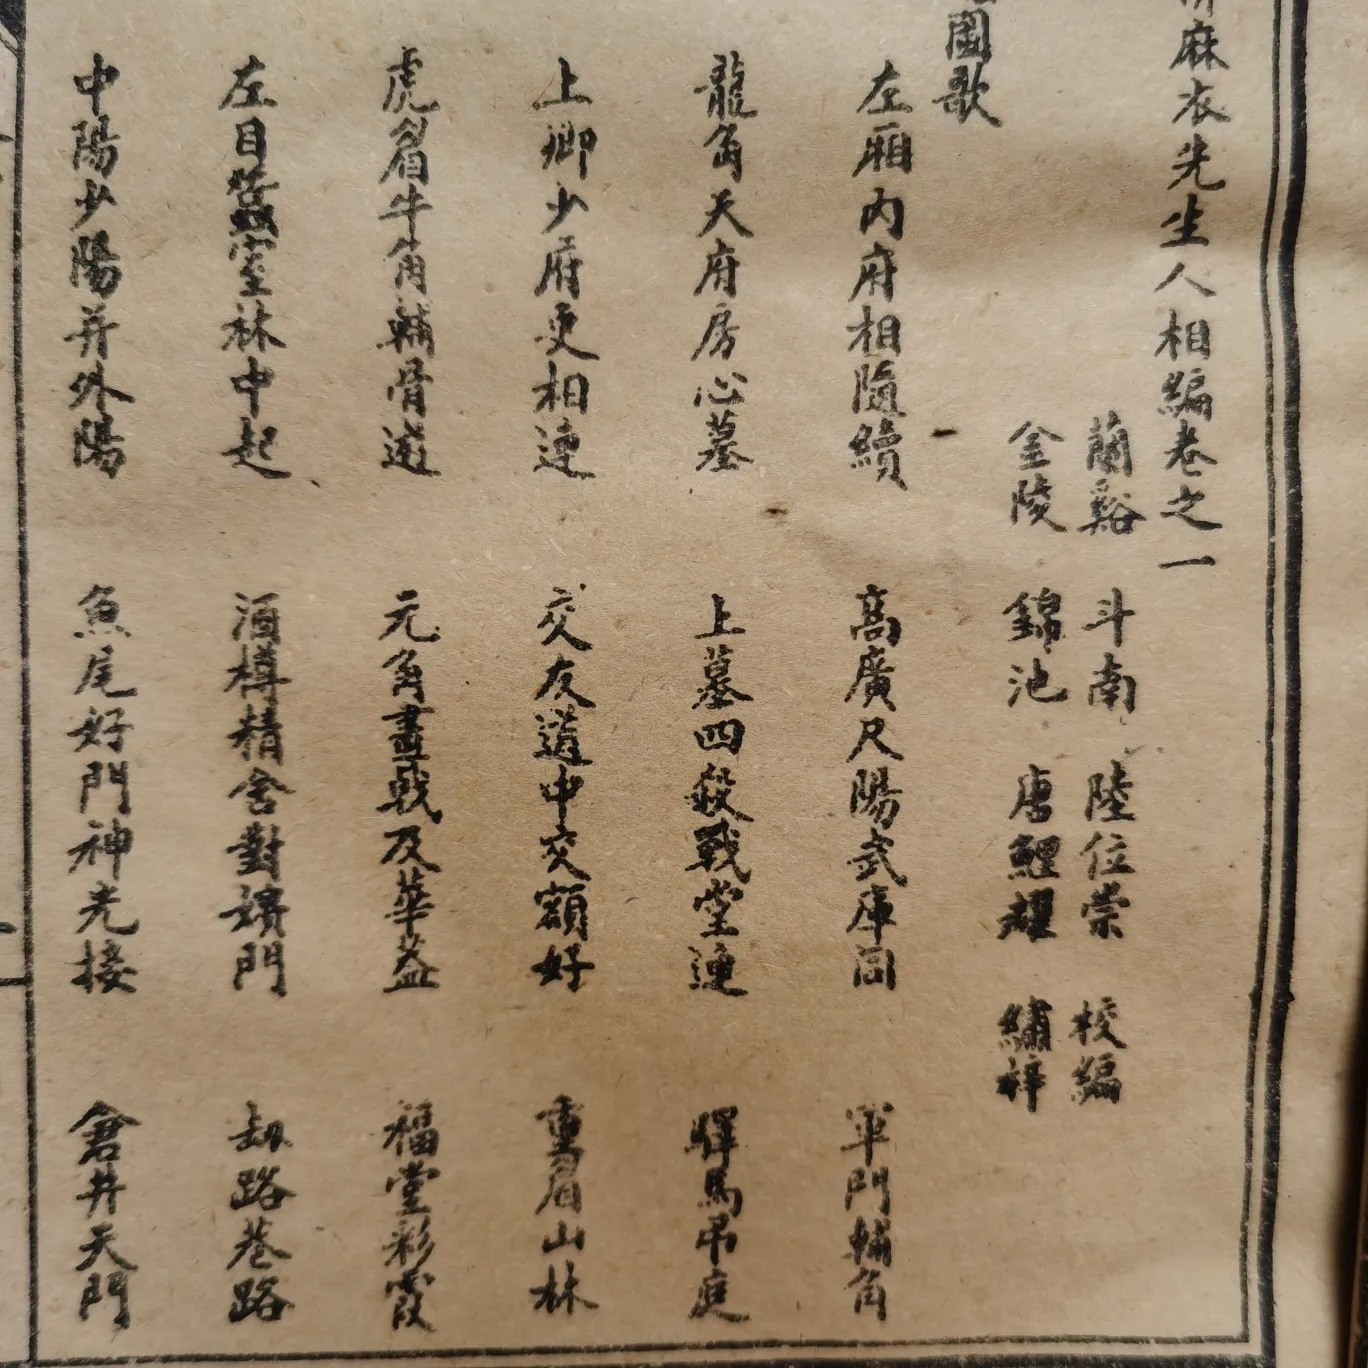 麻衣先生人相編卷之一
蘭谿 斗南 陸位崇 校編
金陵 錦池 唐鯉耀 繡梓
圖歌
左廂內府相隨續 高廣尺陽武庫同 軍門輔角
龍角天府房心墓 上墓四殺戰堂連 驛馬吊庭
上卿少府更相連 交友道中交額好 重眉山林
虎眉牛角輔骨遊 元角畫戟及華蓋 福堂彩霞
左目蠶室林中起 酒樽精舍對嬪門 劫路巷路
中陽少陽并外陽 魚尾奸門神光接 倉井天門